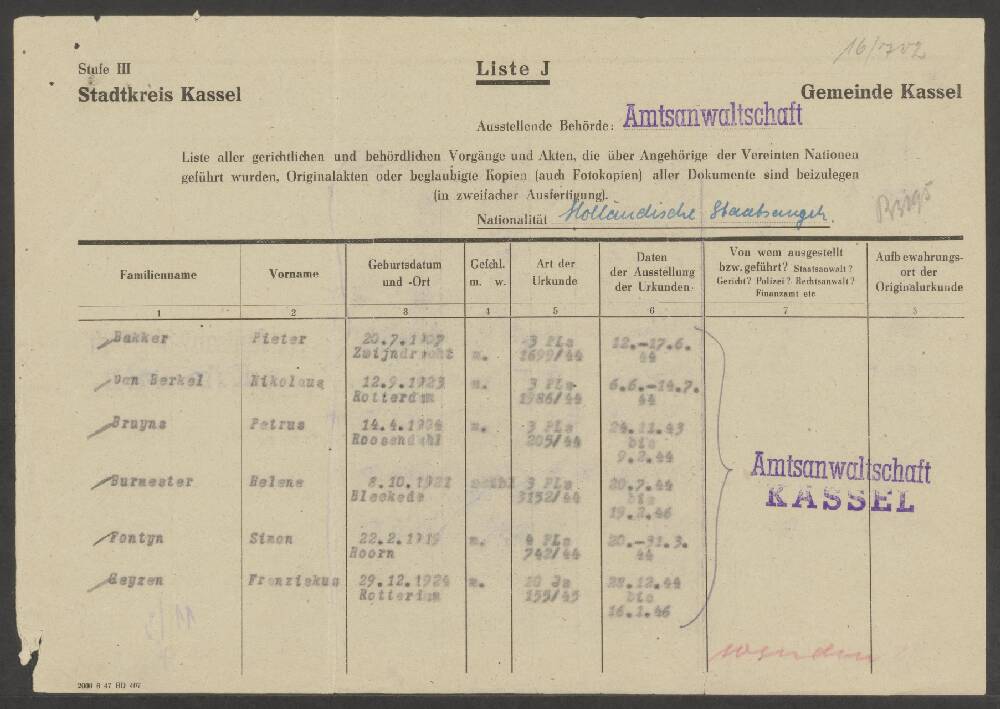 16/702
Stufe III
Liste J
Stadtkreis Kassel
Gemeinde Kassel
Ausstellende Behörde: Amtsanwaltschaft
Liste aller gerichtlichen und behördlichen Vorgänge und Akten, die über Angehörige der Vereinten Nationen
geführt wurden, Originalakten oder beglaubigte Kopien (auch Fotokopien) aller Dokumente sind beizulegen
(in zweifacher Ausfertigung).
Nationalität Holländische Staatsangeh.
Familienname Vorname Geburtsdatum und -Ort Geschl. m. w. Art der Urkunde Daten der Ausstellung der Urkunden Von wem ausgestellt bzw. geführt? Staatsanwalt? Gericht? Polizei? Rechtsanwalt? Finanzamt etc Aufbewahrungsort der Originalurkunde
1 2 3 4 5 6 7 8
Bakker Pieter 20.7.1907 3 PLs 12.-17.6.
Zwijndrecht m. 1699/44 44
Van Berkel Nikolaus 12.9.1923 m. 3 PLs 6.6.-14.7.
Rotterdam 1986/44 44
Bruyns Petrus 14.4.1924 m. 3 PLs 24.11.43
Roosendahl 205/44 bis
9.2.44
Burmester Helene 8.10.1921 weibl 3 PLs 20.7.44
Bleckede 3152/44 bis
19.2.46
Amtsanwaltschaft
KASSEL
Fontyn Simon 22.2.1919 m. 4 PLs 20.-31.3.
Hoorn 742/44 44
Geyzen Franziskus 29.12.1924 m. 10 Js 28.12.44
Rotterdam 155/45 bis
16.1.46
wenden
2000 8 47 HD 407